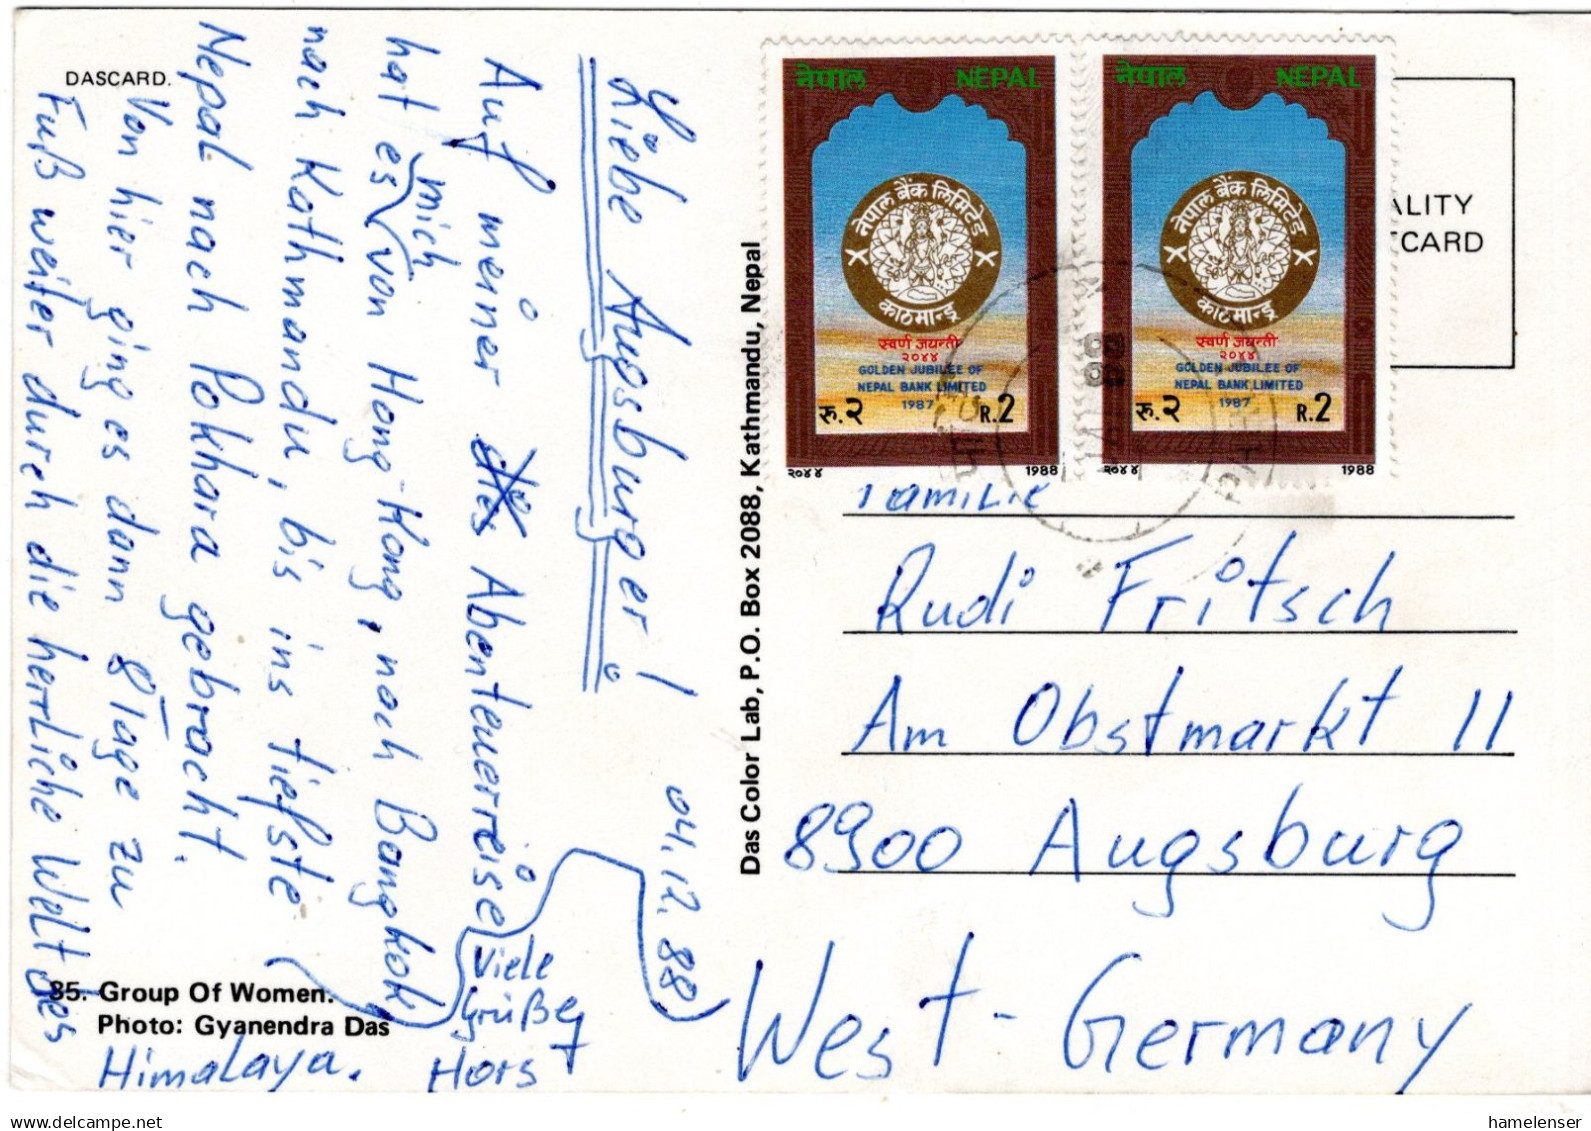 DASCARD.
Liebe Augsburger!
04.12.88
Auf meiner Abenteuerreise
hat es mich von Hong-Kong, nach Bangkok
nach Kathmandu, bis ins tiefste
Nepal nach Pokhara gebracht.
Von hier ging es dann 8 Tage zu
Fuß weiter durch die herrliche Welt des
Himalaya.
Viele
Grüße
Horst
85. Group Of Women.
Photo: Gyanendra Das
Das Color Lab, P.O. Box 2088, Kathmandu, Nepal
नेपाल NEPAL
नेपाल बैंक लिमिटेड
काठमाण्डू
स्वर्ण जयन्ती
२०४४
GOLDEN JUBILEE OF
NEPAL BANK LIMITED
1987
रु.२ R.2
२०४४ 1988
नेपाल NEPAL
नेपाल बैंक लिमिटेड
काठमाण्डू
स्वर्ण जयन्ती
२०४४
GOLDEN JUBILEE OF
NEPAL BANK LIMITED
1987
रु.२ R.2
२०४४ 1988
ALITY
CARD
Familie
Rudi Fritsch
Am Obstmarkt 11
8900 Augsburg
West-Germany
www.delcampe.net
hamelenser